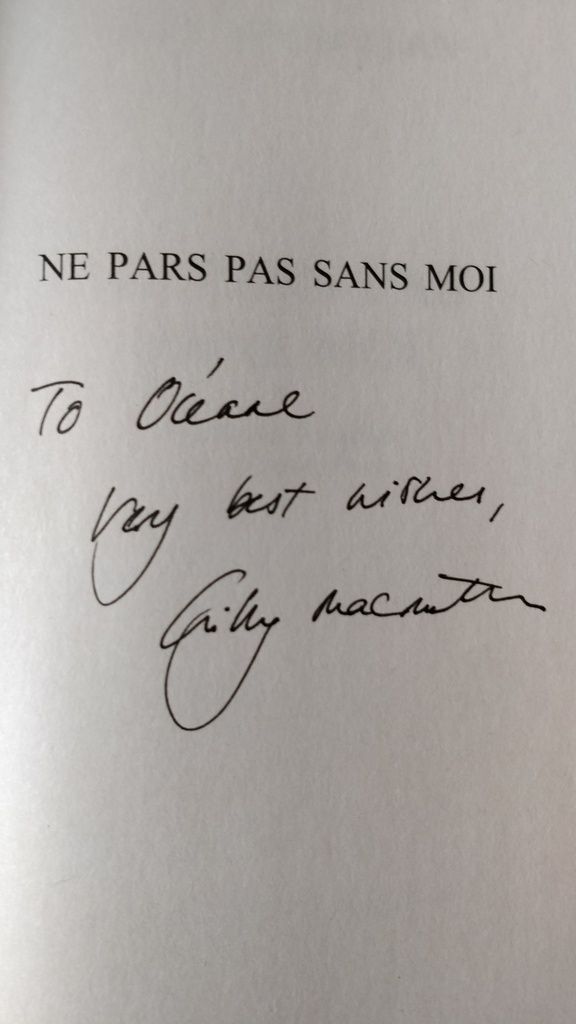 NE PARS PAS SANS MOI
To Océane
Very best wishes,
Gilly Macmillan